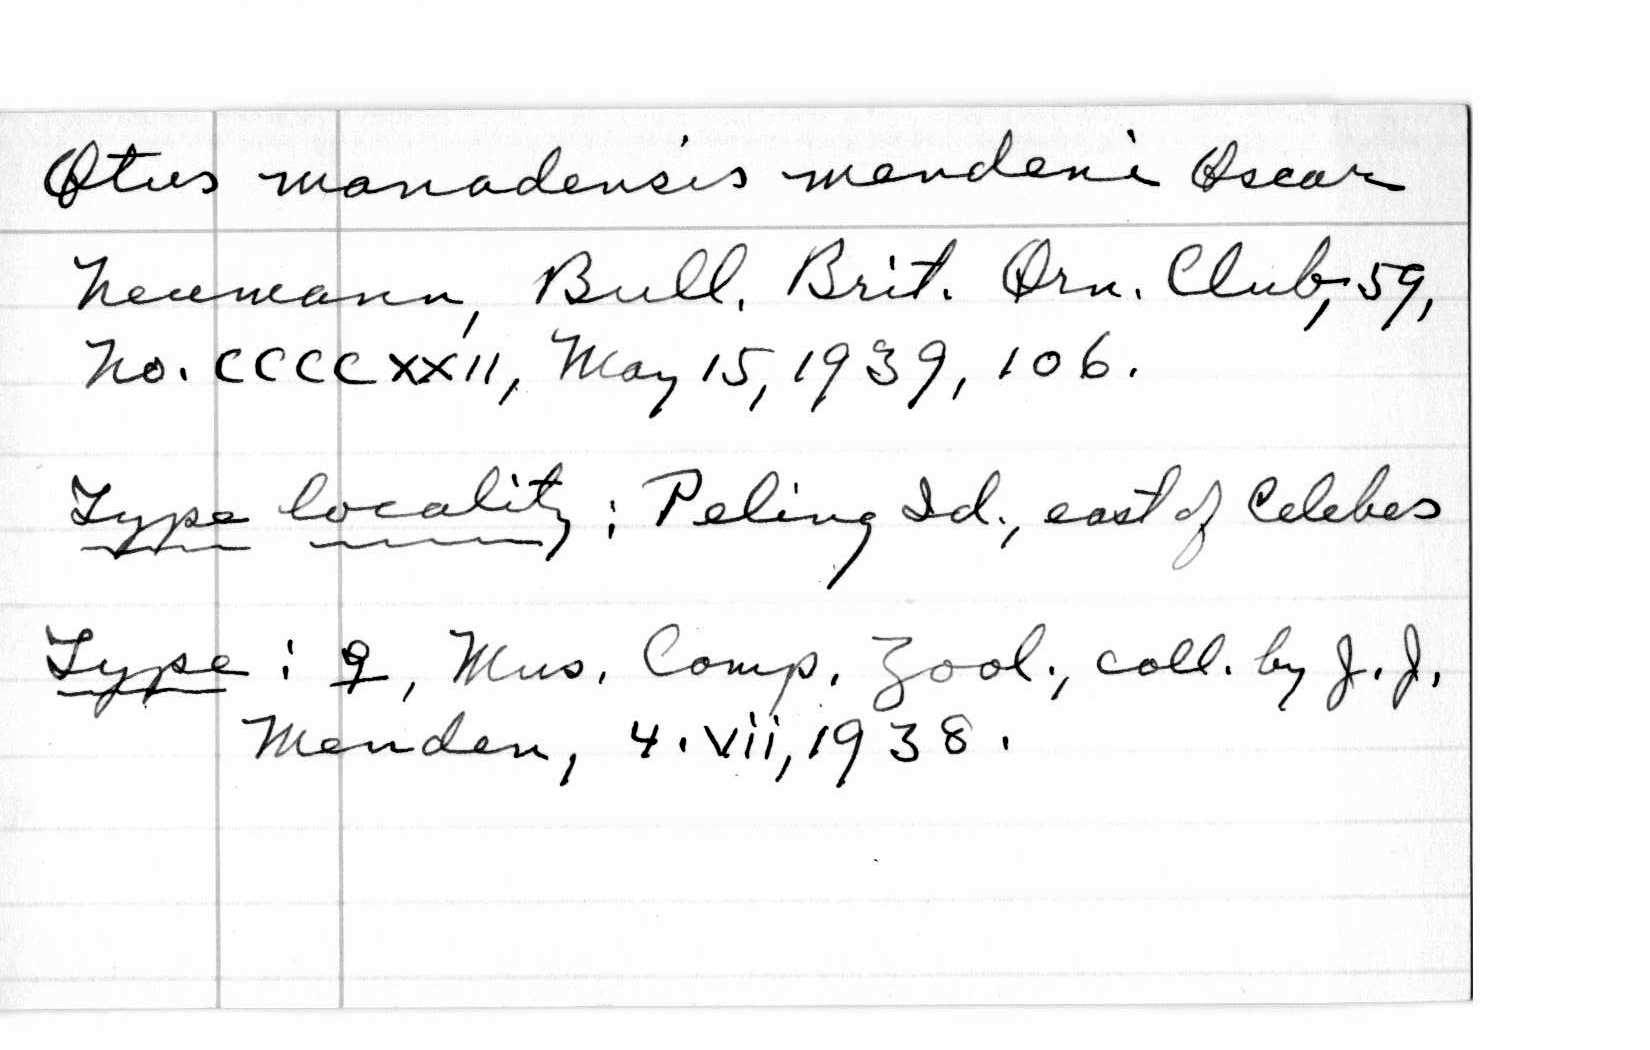 Otus manadensis mendeni Oscar
Neumann, Bull. Brit. Orn. Club, 59,
No. CCCCXXII, May 15, 1939, 106.
Type locality: Peling Id., east of Celebes
Type: ♀, Mus. Comp. Zool., coll. by J. J.
Menden, 4.vii, 1938.